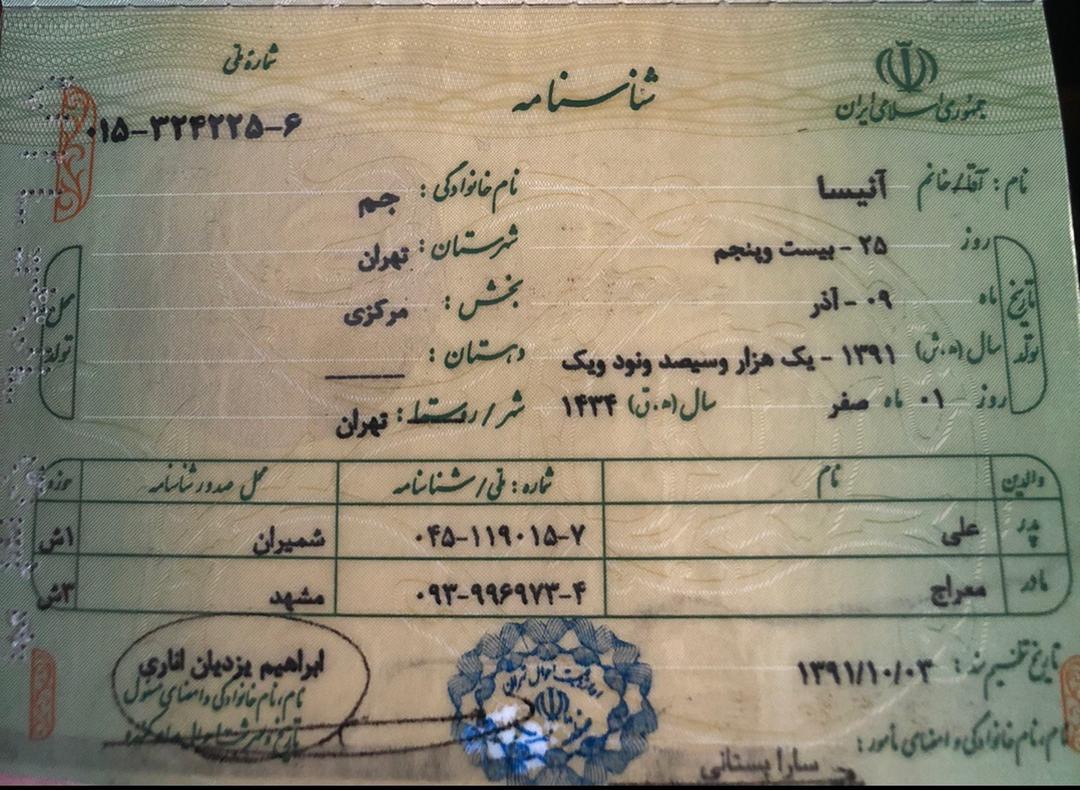 جمهوری اسلامی ایران
شناسنامه
شماره ملی
۰۱۵-۳۲۴۲۲۵-۶
نام : آقا/خانم آنیسا نام خانوادگی : جم
تاریخ تولد
روز ۲۵ - بیست وپنجم
ماه ۰۹ - آذر
سال (ه.ش) ۱۳۹۱ - یک هزار وسیصد ونود ویک
روز ۰۱ ماه صفر سال (ه.ق) ۱۴۳۴
محل تولد
شهرستان : تهران
بخش : مرکزی
دهستان : ــــــ
شهر / روستا : تهران
والدین نام شماره : ملی / شناسنامه محل صدور شناسنامه حوزه
پدر علی ۰۴۵-۱۱۹۰۱۵-۷ شمیران ۱ش
مادر معراج ۰۹۳-۹۹۶۹۷۳-۴ مشهد ۳ش
تاریخ تنظیم سند : ۱۳۹۱/۱۰/۰۳
نام، نام خانوادگی و امضای مأمور :
سارا بستانی
ابراهیم یزدیان اناری
نام، نام خانوادگی و امضای مسئول